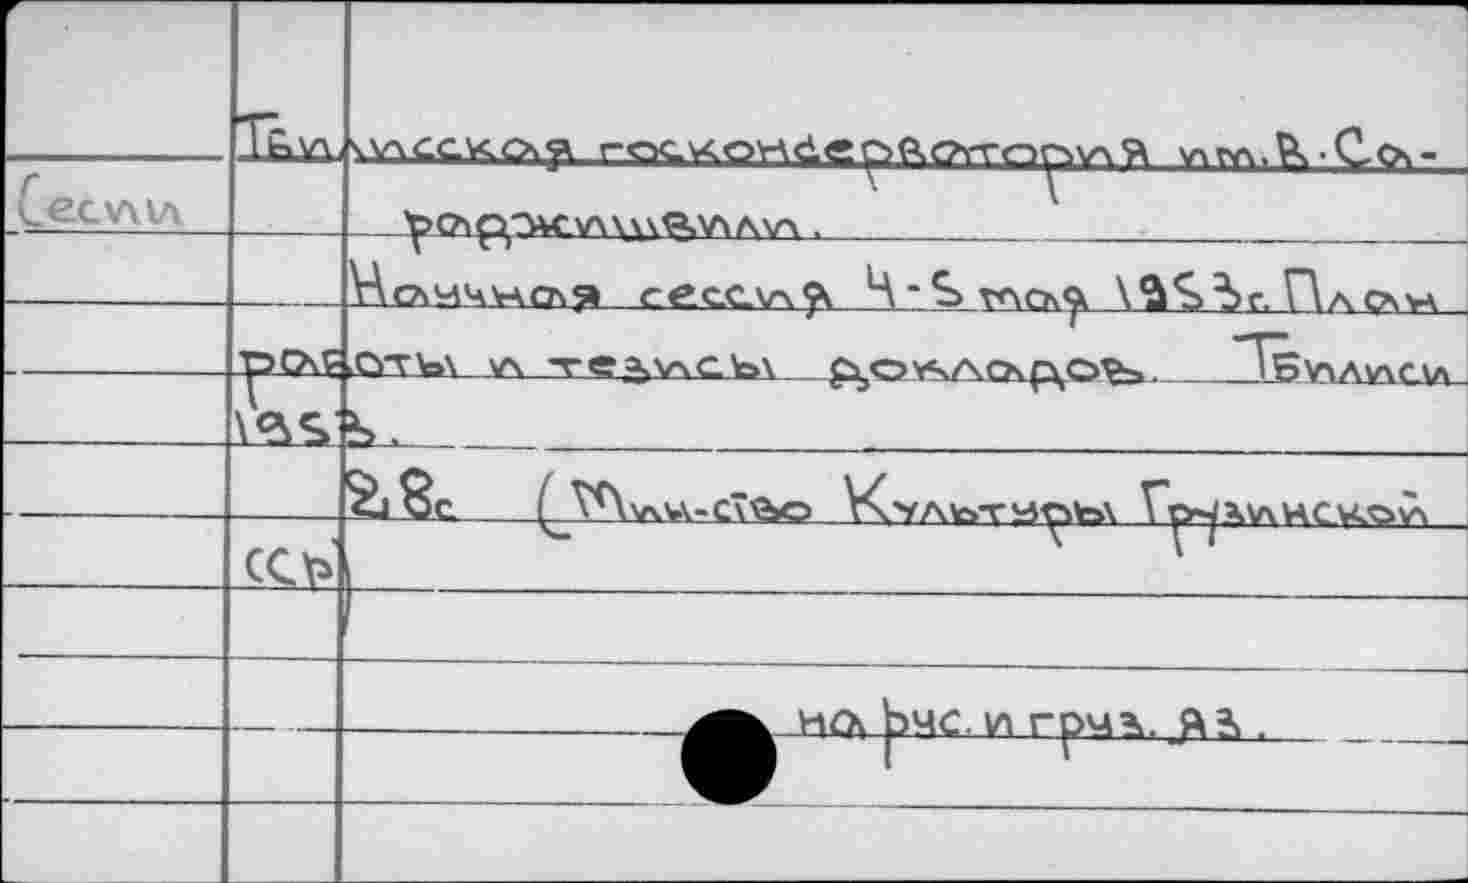 Тбилисская госконсерватория им. В. Са-
Сессии
раджишвили.
Научная сессия 4-5 мая 1953г. План
работы и тезисы докладов. Тбилиси
1953.
28с (Мин-ство Культуры Грузинской
ССР)
на рус. и груз. яз.